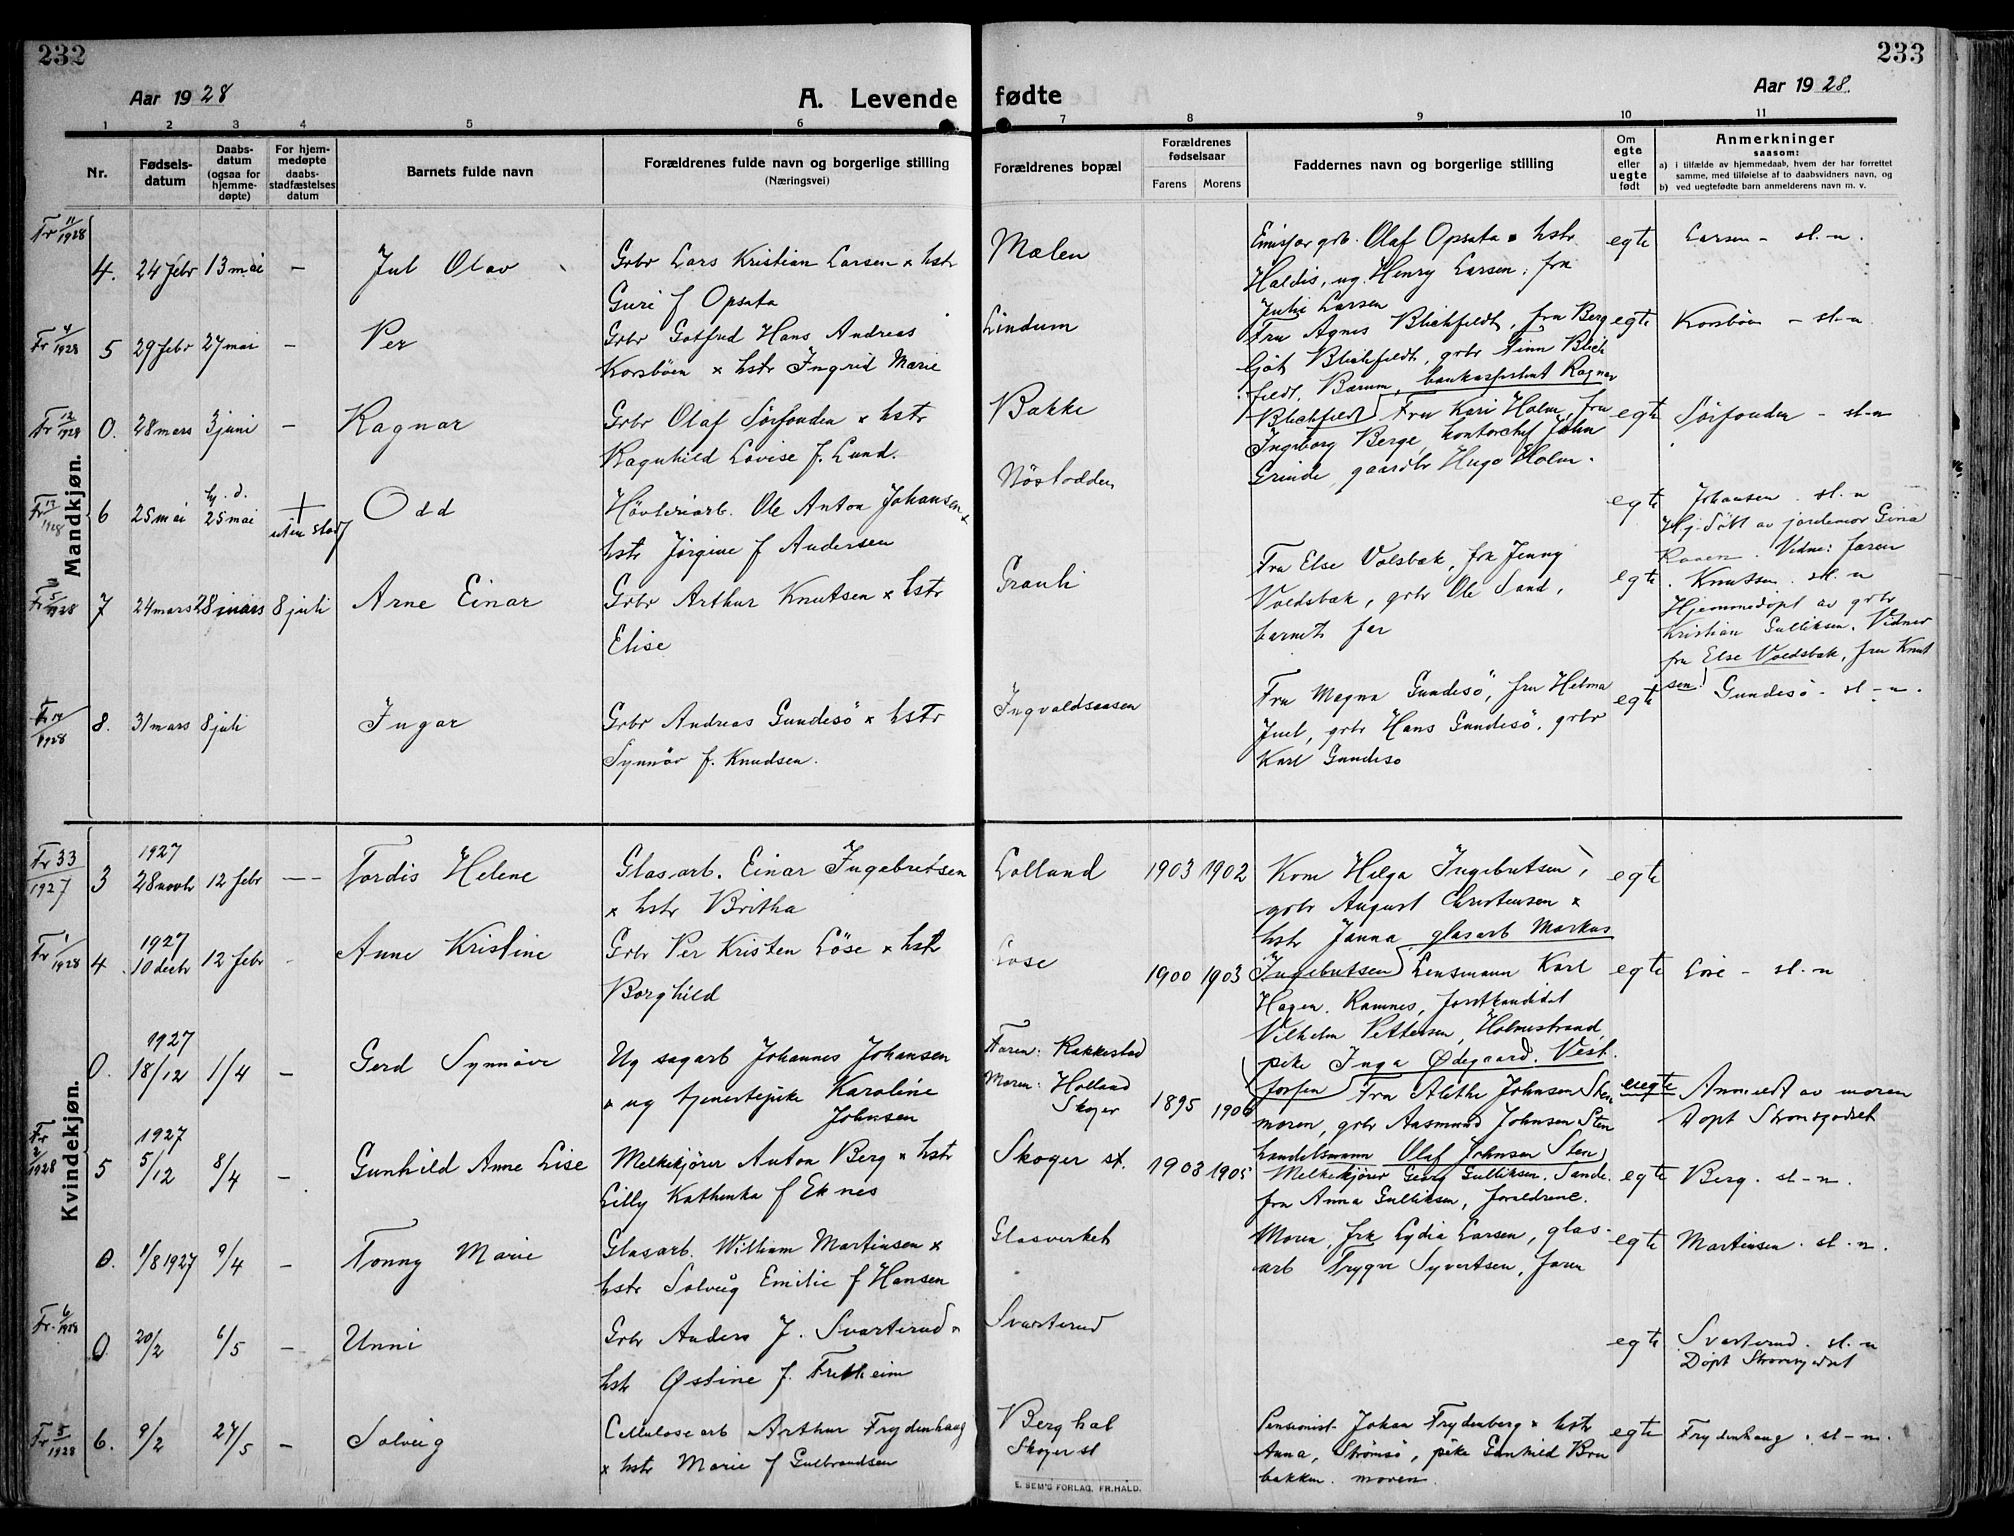 232
233
Aar 1928
A. Levende fødte
Aar 1928.
1 2 3 4 5 6 7 8 9 10 11
Nr.
Fødsels-
datum
Daabs-
datum
(ogsaa for
hjemme-
døpte)
For hjem-
medøpte
daabs-
stadfæstelses
datum
Barnets fulde navn
Forældrenes fulde navn og borgerlige stilling
(Næringsvei)
Forældrenes bopæl
Forældrenes
fødselsaar
Farens Morens
Faddernes navn og borgerlige stilling
Om
egte
eller
uegte
født
Anmerkninger
saasom:
a) i tilfælde av hjemmedaab, hvem der har forrettet
samme, med tilføielse af to daabsvidners navn, og
b) ved uegtefødte barn anmelderens navn m. v.
Mandkjøn.
Fr 11/1928
4. 24 febr 13 mai – Jul Olav
Grbr Lars Kristian Larsen x hstr
Guri f Opsata
Mælen
Olaf Opsata x hstr
Haldis, ug. Henry Larsen, frk
Julie Larsen
egte
Larsen – st.-n.
Fr 4/1928
5 29 febr 27 mai – Per
Grbr Gotfred Hans Andreas
Korsbøen x hstr Ingrid Marie
Lindum
Fru Agnes Blichfeldt, fru Berg
ljot Blichfeldt, grbr Finn Blich
feldt, Bærum, Ragnar
Blichfeldt
egte
Korsbøen – st.-n
Fr 12/1928
0. 28 mars 3 juni – Ragnar
Grbr Olaf Sørfonden x hstr
Ragnhild Lovise f. Lund.
Bakke
Fru Kari Holm, frk
Ingeborg Berge, kontorchef John
Grinde, gaardbr Hugo Holm.
egte
Sørfonden – st-n
Fr 17/1928
6 25 mai hj. d. 25 mai + uten stadf
Odd
Høvleriarb. Ole Anton Johansen x
hstr Jørgine f Andersen
Nøstodden
egte
Johansen. st.-n
Hj. døbt av jordemor Gina
Vidne: faren
Fr 5/1928
7 24 mars 28 mars 8 juli Arne Einar
Grbr Arthur Knutsen x hstr
Elise
Granli
Fru Else Volsbæk, frk Jenny
Voldsbæk, grbr Ole Sand,
barnets far
egte
Knutsen. st. n
Hjemmedøpt av grbr
Kristian Gulliksen. Vidner
fru Else Voldsbæk, fru Knut
sen
Fr 14/1928
8. 31 mars 8 juli Ingar
Grbr Andreas Gundesø x hstr
Synnøv f. Knudsen.
Ingvaldsaasen
Fru Magna Gundesø, fru Helma
Juel, grbr Hans Gundesø, grbr
Karl Gundesø
egte
Gundesø – st-n.
Kvindekjøn.
Fr 33/1927
3 1927 28 novbr 12 febr – Tordis Helene
Glasarb. Einar Ingebretsen
x hstr Britha
Lolland 1903 1902
Kone Helga Ingebretsen,
grbr August Christensen x
hstr Janna, glasarb Markus
Ingebretsen
egte
Fr 1/1928
4 1927 10 decbr 12 febr Anne Kristine
Grbr Per Kristen Løse x hstr
Borghild
Løse 1900 1903
Lensmann Karl
Hagen. Ramnes, forstkandidat
Vilhelm Pettersen, Holmestrand,
pike Inga Ødegaard. Vest
fossen
egte
Løse – st.-n
0. 1927 18/12 1/4 – Gerd Synnøve
Ug sagarb Johannes Johansen
x ug tjenestepike Karoline
Johnsen
Faren: Rakkestad
Moren: Holland
Skoger
1895 1906
Fru Alethe Johnsen Sten
moren, grbr Aasmund Johnsen Sten
handelsmann Olaf Johnsen Sten
uegte
Anmeldt av moren
Døpt Strømsgodset
Fr 2/1928
5 1927 5/12 8/4 – Gunhild Anne Lise
Melkekjører Anton Berg x hstr
Lilly Kathenka f Eknes
Skoger st. 1903 1905
Melkekjører Georg Gulliksen. Sande.
fru Anna Gulliksen, foreldrene.
egte
Berg. st-n.
0. 1/8 1927 9/4 – Tonny Marie
Glasarb. William Martinsen x
hstr Solveig Emilie f Hansen
Glasverket
Moren, frk Lydia Larsen, glas-
arb Trygve Syvertsen, faren
egte
Martinsen. st.-n.
Fr. 6/1928
0 20/2 6/5 – Unni
Grbr Anders J. Svarterud x
hstr Østine f. Fretheim
Svarterud
egte
Svarterud. st.-n
Døpt Strømsgodset
Fr 5/1928
6. 9/2 27/5 – Solveig
Cellulosearb Arthur Frydenhaug
x hstr Marie f Gulbrandsen
Berghal
Skoger st
Pensionist Johan Frydenberg x hstr
Anna, Strømsø, pike Gunhild Bru
bakken. moren.
egte
Frydenhaug. st-n.
E. SEM'S FORLAG, FR.HALD.